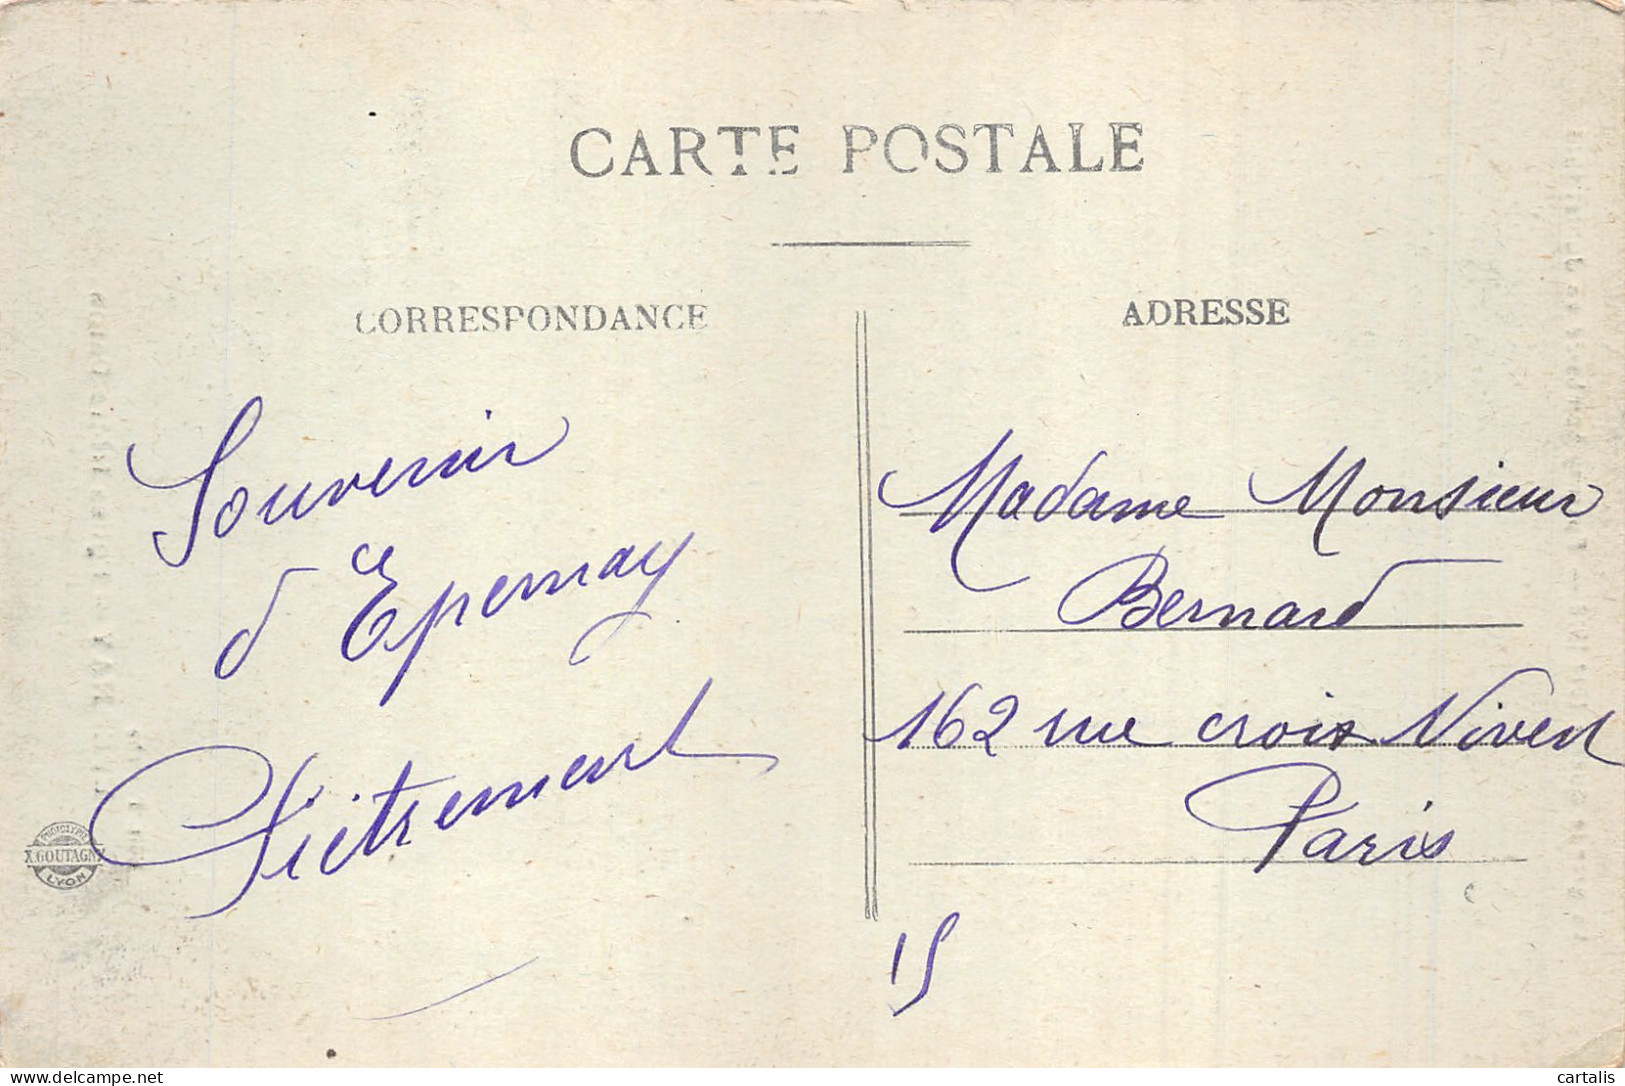 CARTE POSTALE
CORRESPONDANCE
ADRESSE
Souvenir
d'Epernay
Piètrement
Madame Monsieur
Bernard
162 rue croix Nivert
Paris
15
PHOTOTYPIE
X.GOUTAGNY
LYON
delcampe.net
cartalis